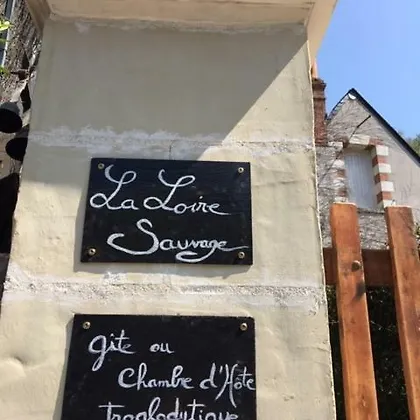 La Loire
Sauvage
gîte ou
Chambre d'Hôte
Troglodytique